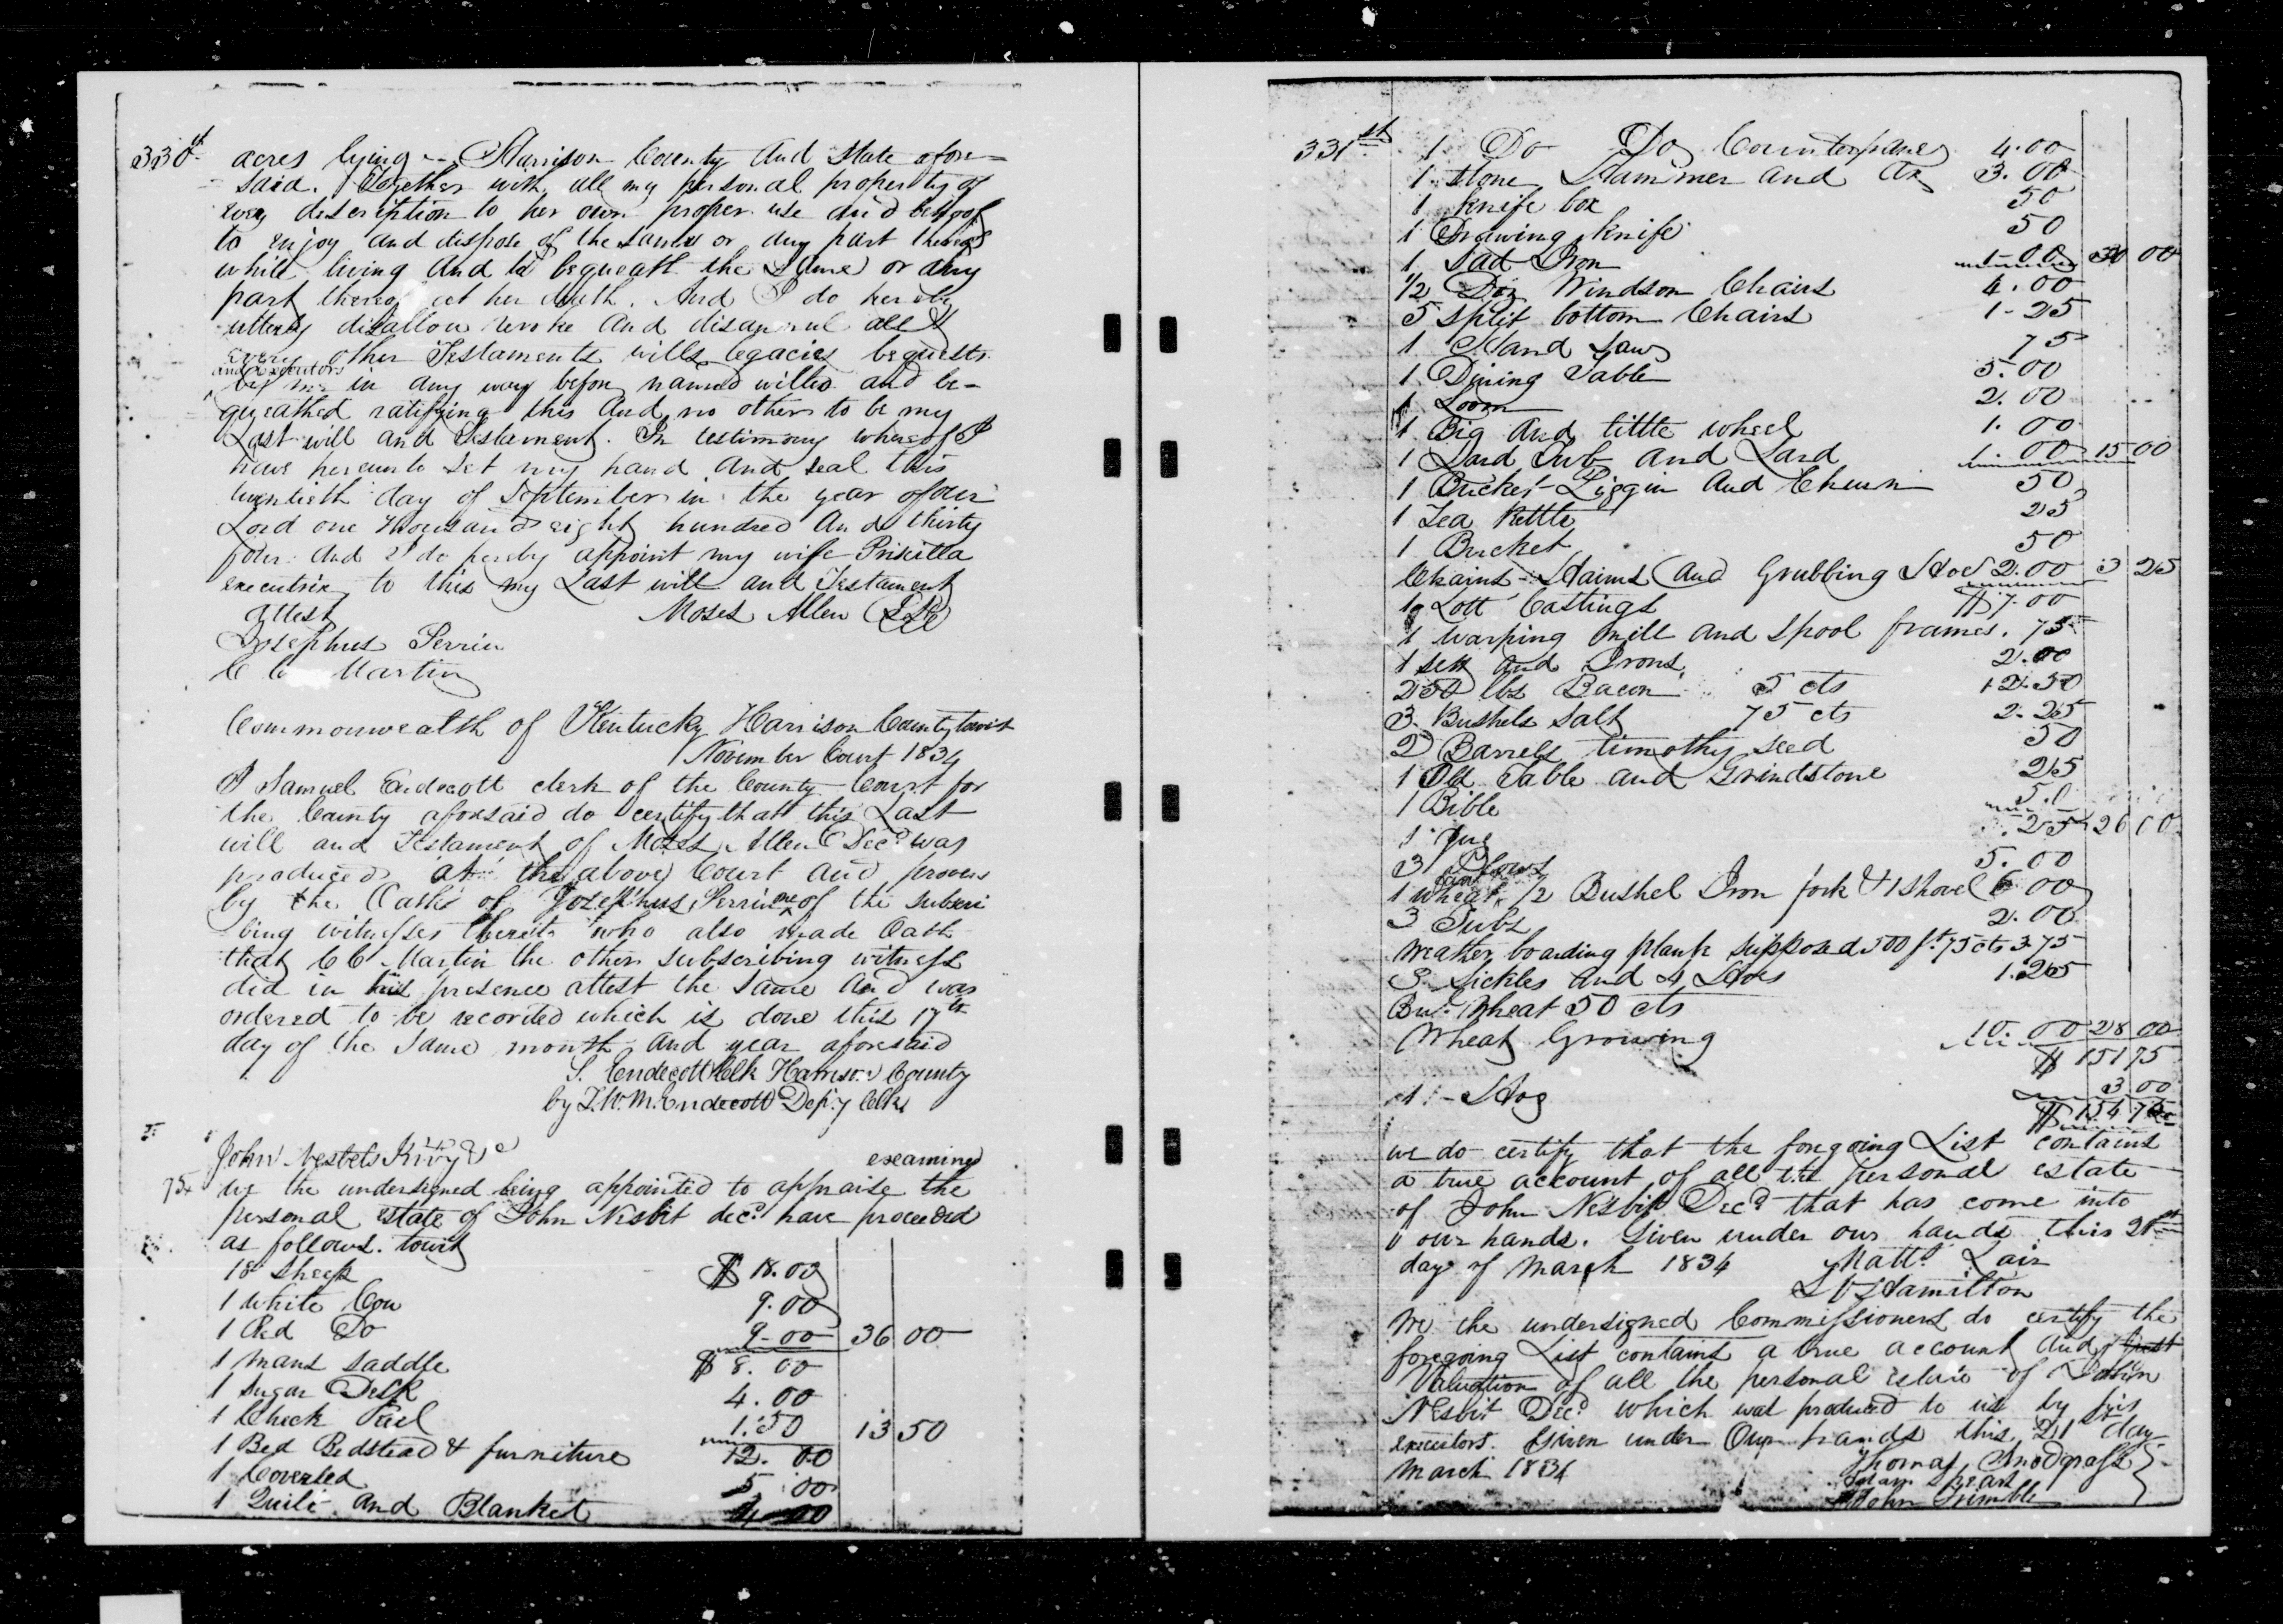 330st acres lying in Harrison County and State afore=
said. Together with all my personal property of
every description to her own proper use and behoof
to enjoy and dispose of the same or any part thereof
while living and to bequeath the same or any
part thereof at her death. And I do hereby
utterly disallow revoke and disannul all &
every other Testaments wills legacies bequests
and executors
by me in any way before named willed and be-
queathed ratifying this and no other to be my
Last will and Testament. In testimony whereof I
have hereunto set my hand and seal this
twentieth day of September in the year of our
Lord one thousand eight hundred and thirty
four. And I do hereby appoint my wife Priscilla
executrix to this my Last will and Testament
attest Moses Allen
Josephus Perrin
C C Martin
Commonwealth of Kentucky Harrison County towit
November Court 1834
I Samuel Endecott clerk of the County Court for
the County aforesaid do certify that this Last
will and Testament of Moses Allen Decd was
produced at the above Court and proven
by the Oaths of Josephus Perrin one of the subscri
bing witnesses thereto who also made Oath
that C C Martin the other subscribing witness
did in his presence attest the same and was
ordered to be recorded which is done this 17th
day of the same month and year aforesaid
S. Endecott Clk Harrison County
by Endecott Depy Clk
John Nesbets examined
75x we the undersigned being appointed to appraise the
personal estate of John Nesbit decd have proceeded
as follows. towit
18 Sheep $ 18.00
1 White Cow 9.00
1 Red Do 9-00 36 00
1 mans saddle $ 8.00
1 Sugar Desk 4.00
1 Check Reel 1.50 13 50
1 Bed Bedstead & furniture 12.00
1 Coverled 5.00
1 Quilt and Blanket 4.00
331st 1 Do Do Counterpane 4.00
1 stone Hammer and Ax 3.00
1 Knife box 50
1 Drawing Knife 50
1 Sad Iron 1.00 30 00
1/2 Doz Windson Chairs 4.00
5 split bottom Chairs 1-25
1 Hand Saw 75
1 Dining Table 5.00
1 Loom 2.00
1 Big and little wheel 1.00
1 Lard Tub and Lard 1.00 15 00
1 Bucket Piggin and Churn 50
1 Tea Kettle 25
1 Bucket 50
Chains Haims and Grubbing Hoe 2.00 3 25
1 Lott Castings $7.00
1 Warping mill and Spool frames. 75
1 sett and Irons 2.00
250 lbs Bacon 5 cts 12.50
3 Bushels Salt 75 cts 2.25
2 Barrels timothy seed 50
1 Old Table and Grindstone 25
1 Bible 50
1 Jug .25 26 00
3 Plows 5.00
1 wheat 1/2 Bushel Iron fork & 1 Shovel 6 00
3 Tubs 2.00
Weather boarding plank supposed 500 ft. 75 cts 3.75
3 Sickles and 4 Hoes 1.25
Bu. Wheat 50 cts
Wheat Growing 10.00 28 00
$ 151 75
1 - Hog 3 00
$ 154 75
we do certify that the foregoing List contains
a true account of all the personal estate
of John Nesbit Decd that has come into
our hands. Given under our hands this 21st
day of March 1834 Matt. Lair
Hamilton
We the undersigned Commissioners do certify the
foregoing List contains a true account and just
Valuation of all the personal estate of John
Nesbit Decd which was produced to us by his
executors. Given under Our hands this 21st day
March 1834 Thomas Snodgrass
John Trimble